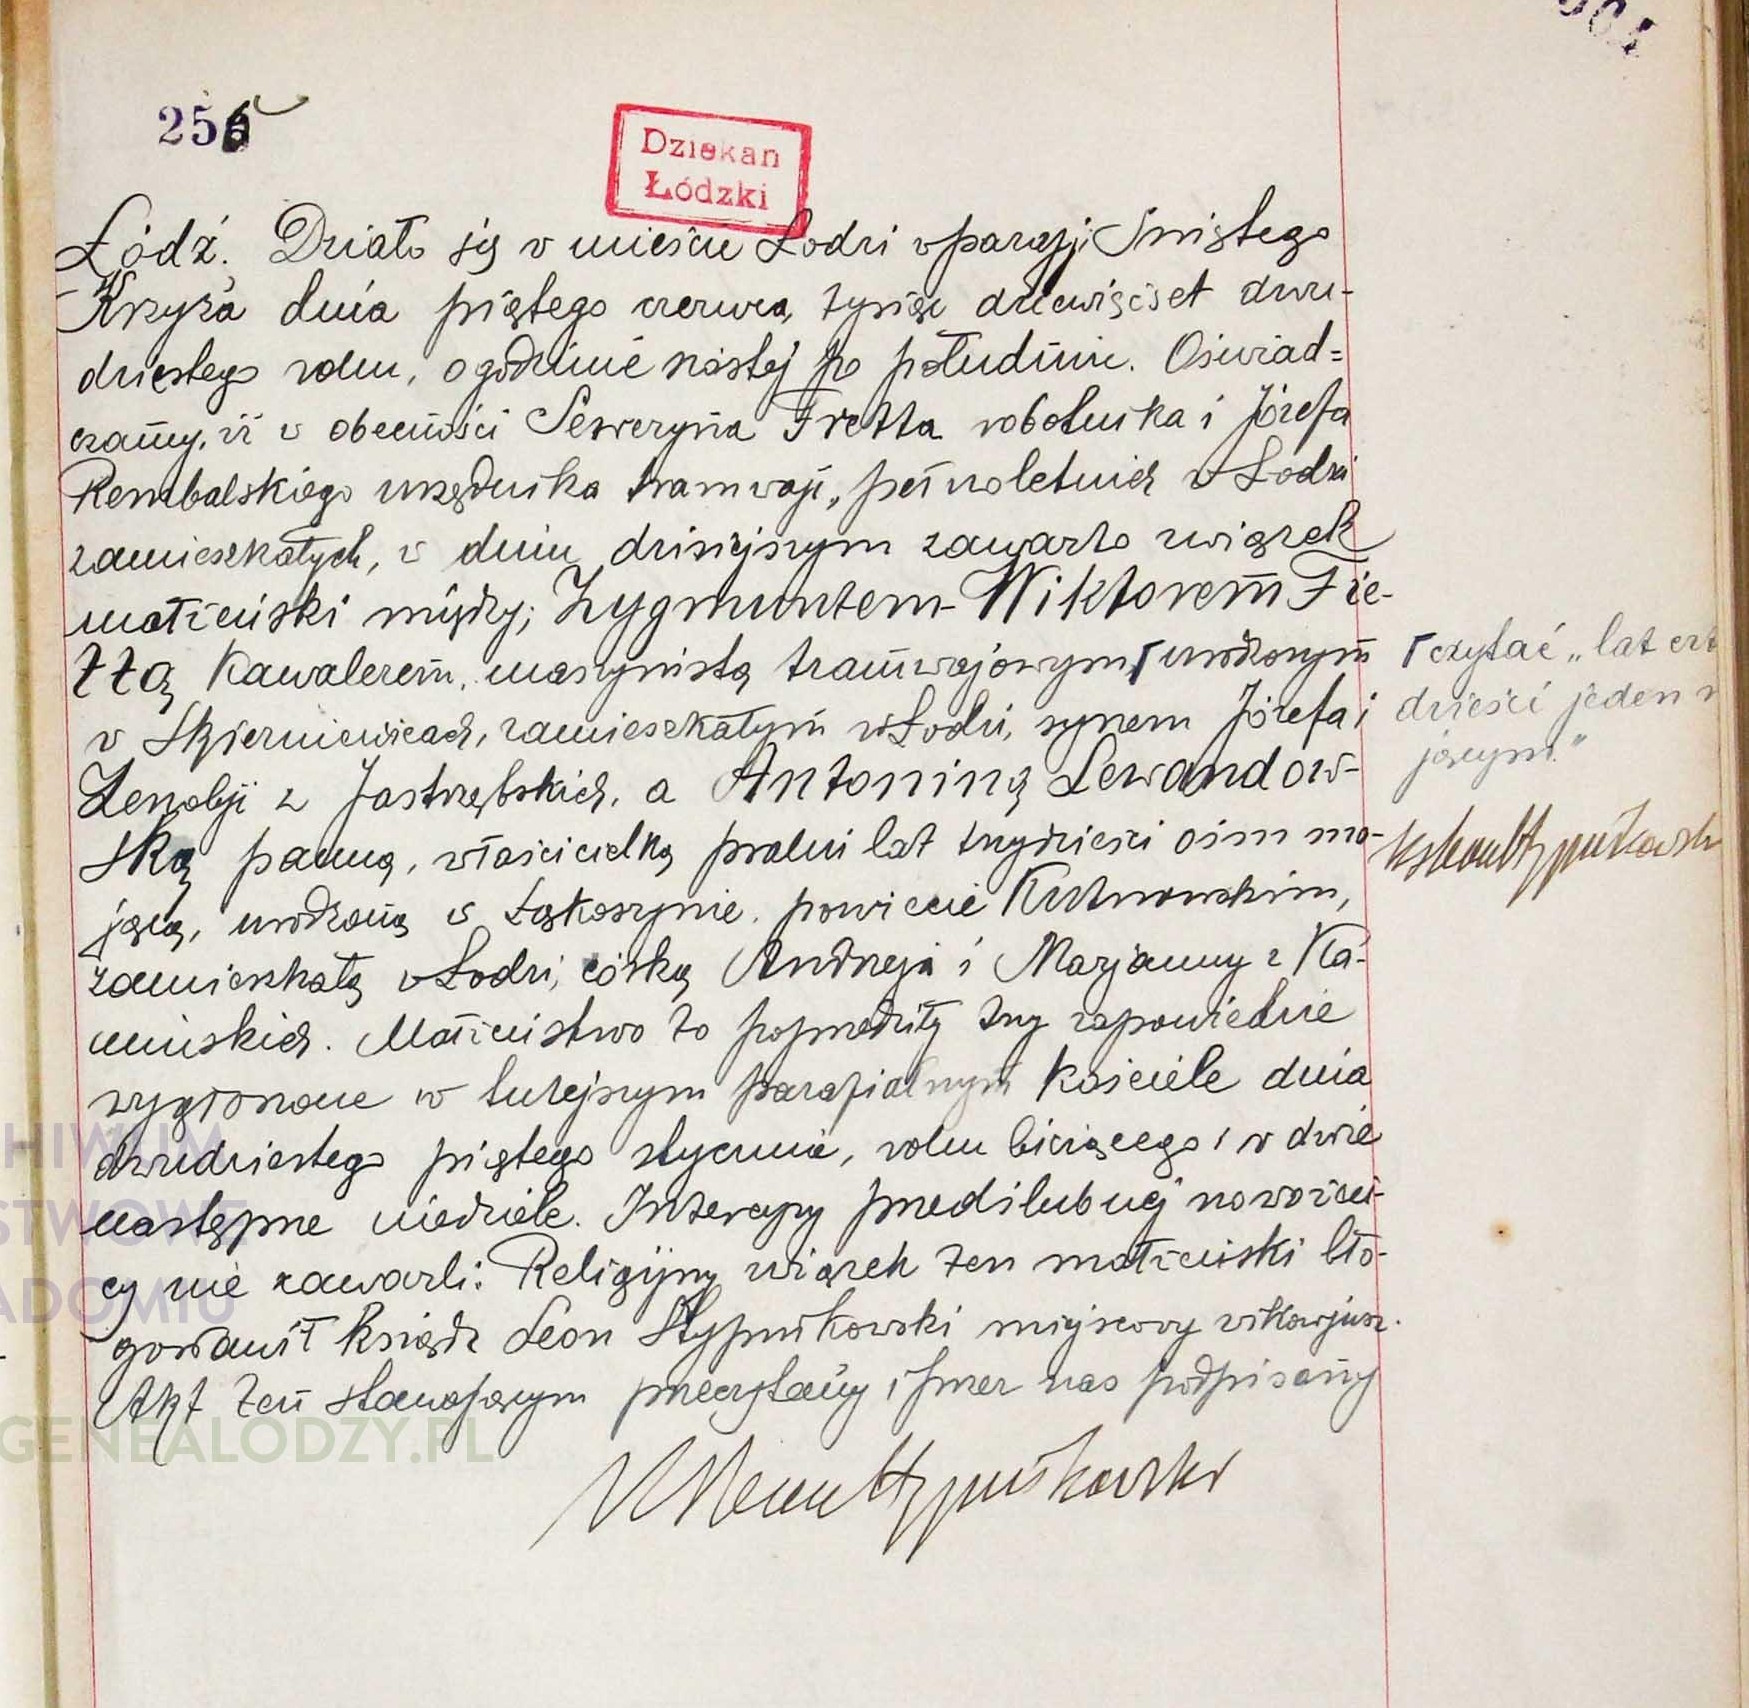 255
Dziekan
Łódzki
Łódź. Działo się w mieście Łodzi w parafji Świętego
Krzyża dnia piątego czerwca, tysiąc dziewięćset dwu-
dziestego roku, o godzinie szóstej po południu. Oświad=
czamy, iż w obecności Seweryna Fretta robotnika i Józefa
Rembalskiego urzędnika tramwaji, pełnoletnich w Łodzi
zamieszkałych, w dniu dzisiejszym zawarto związek
małżeński między; Zygmuntem-Wiktorem Fie-
ttą kawalerem, maszynistą tramwajowym, urodzonym
w Skierniewicach, zamieszkałym w Łodzi, synem Józefa i
Zenobji z Jastrzębskich, a Antoniną Lewandow-
ską panną, właścicielką pralni lat trzydzieści ośm ma-
jącą, urodzoną w Łąkoszynie, powiecie Kutnowskim,
zamieszkałą w Łodzi, córką Andrzeja i Marjanny z Ka-
mińskich. Małżeństwo to poprzedziły trzy zapowiedzie
wygłoszone w tutejszym parafialnym kościele dnia
dwudziestego piątego stycznia, roku bieżącego i w dwie
następne niedziele. Intercyzy przedślubnej nowożeń-
cy nie zawarli: Religijny związek ten małżeński bło-
gosławił ksiądz Leon Stypułkowski miejscowy wikarjusz.
Akt ten stawającym przeczytany i przez nas podpisany
czytać „lat czt
dzieści jeden m
jącym."
HIWUM
STWOWE
ADOMIU
GENEALODZY.PL